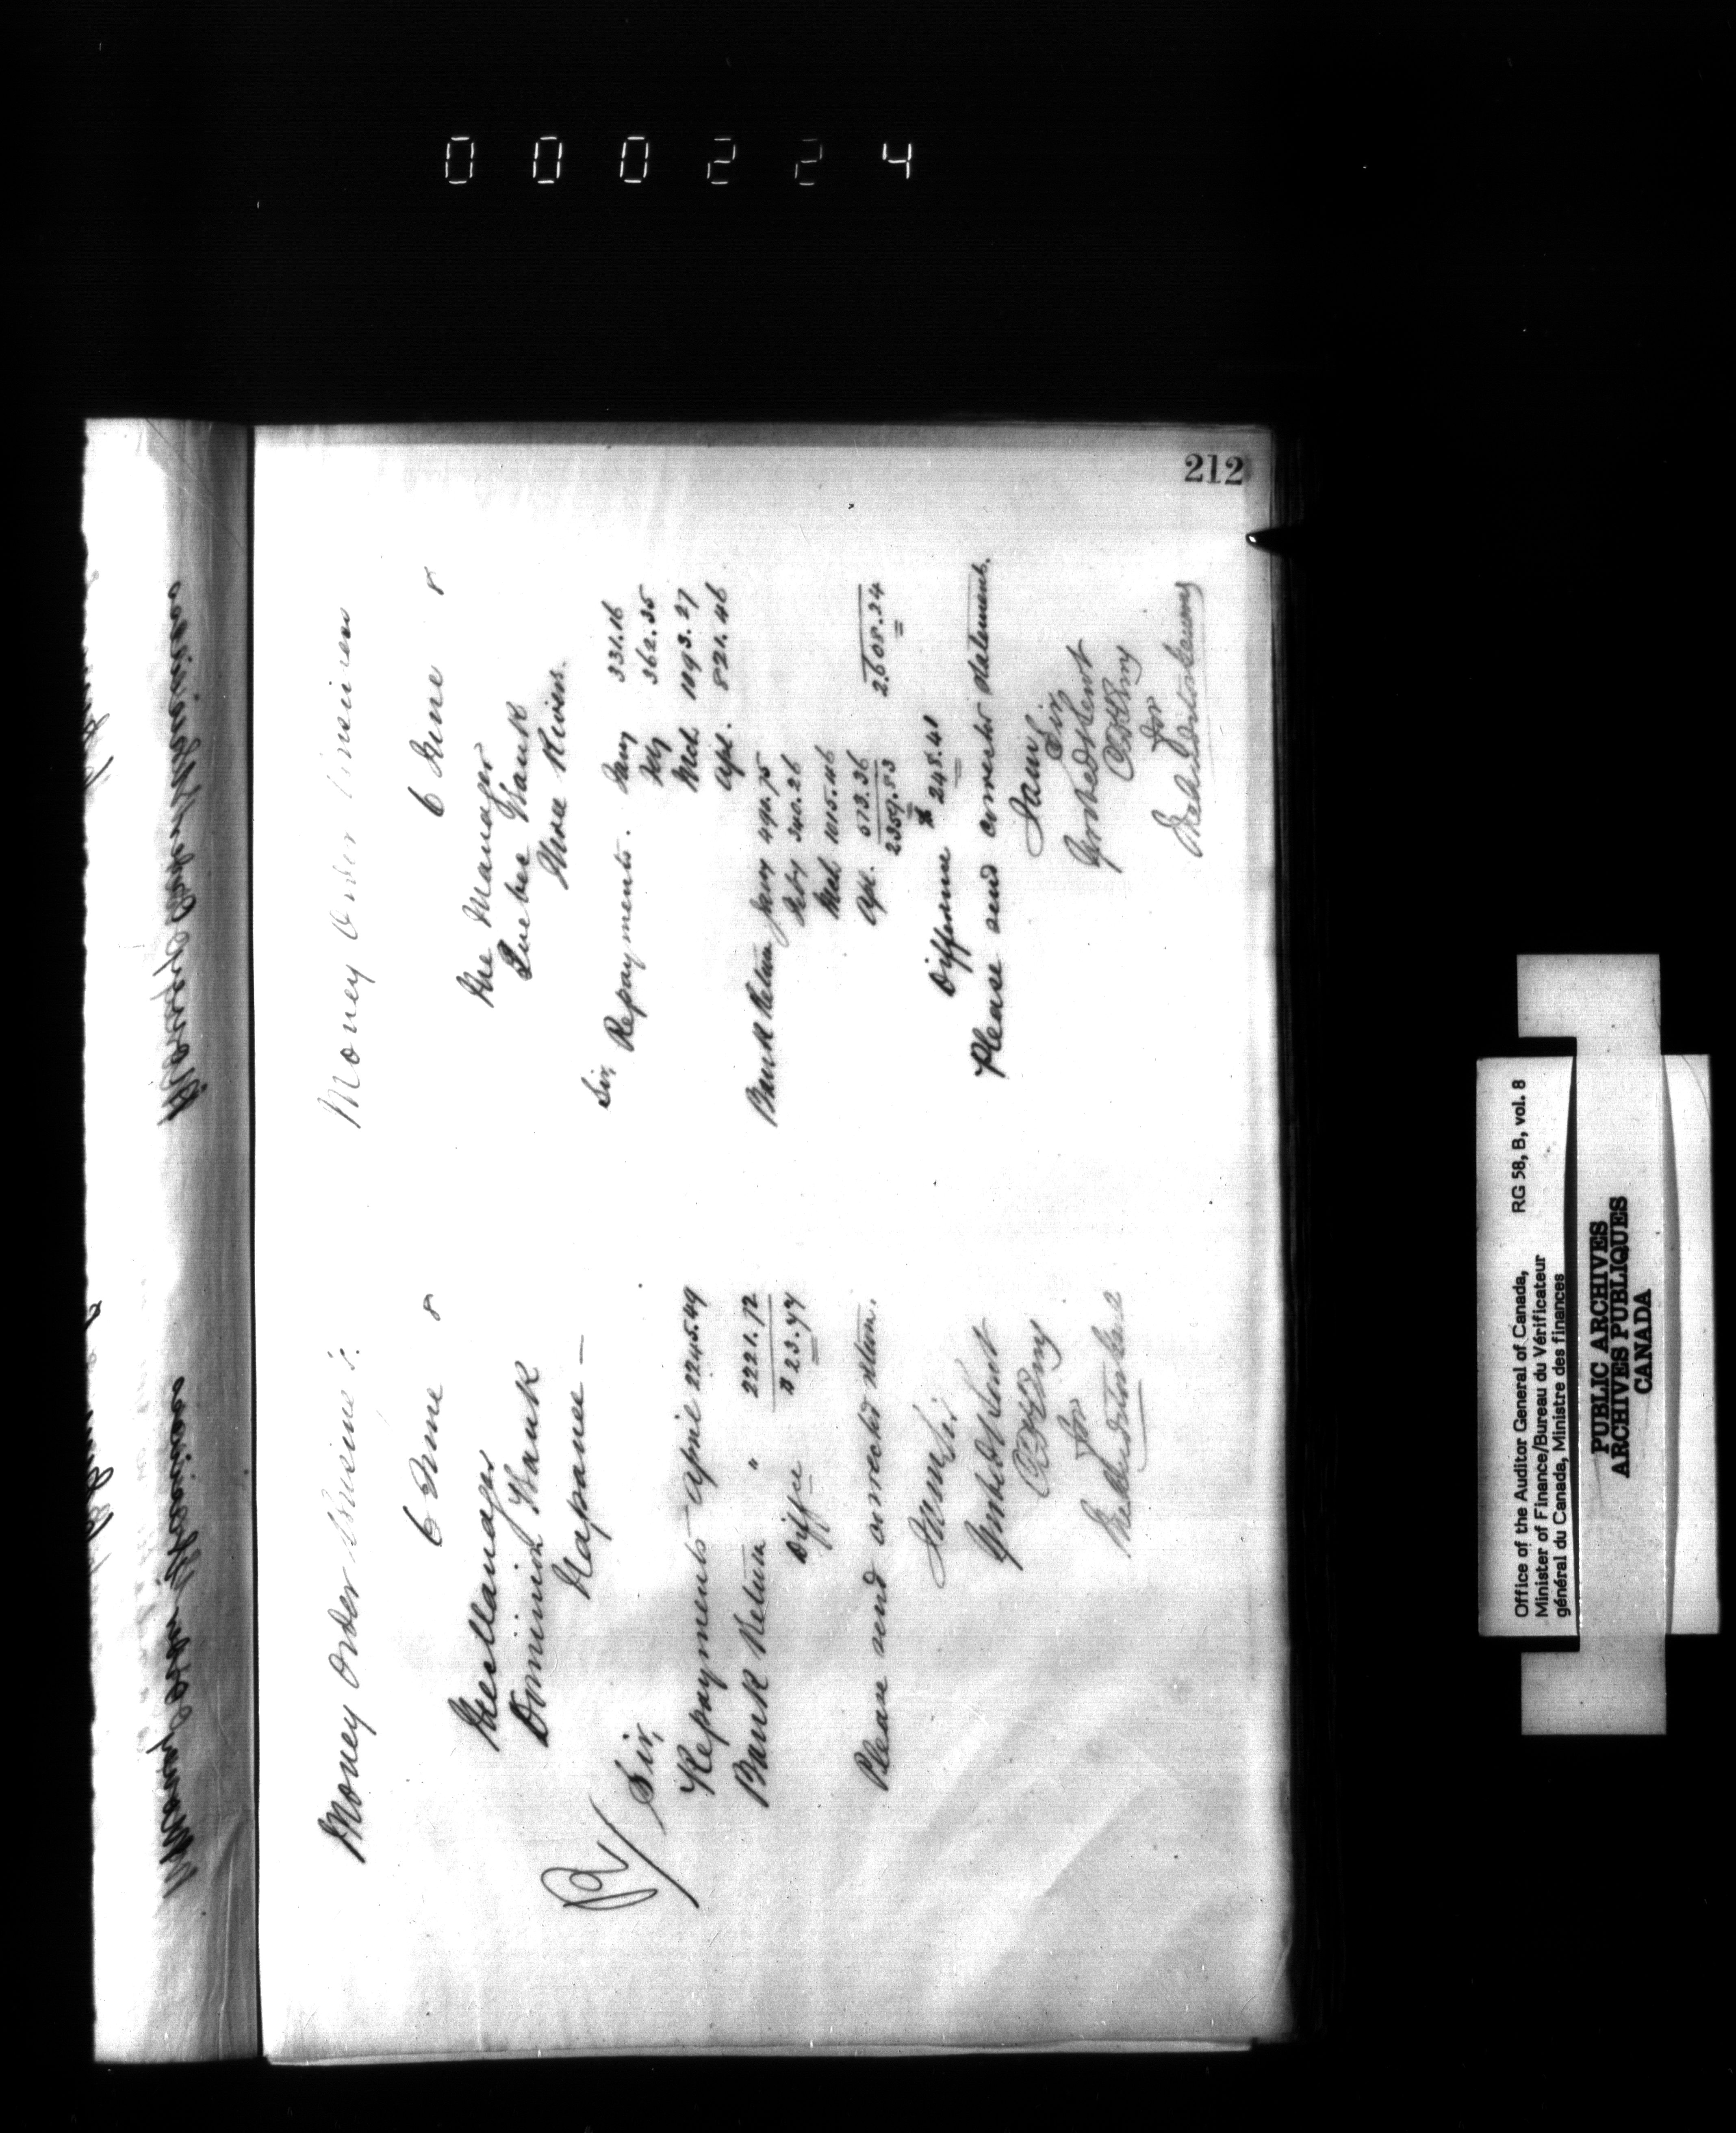 000224
212
Money Order Business.
6 June 8
The Manager
Dominion Bank
Napanee —
Sir,
Repayments — April 2245.49
Bank Return " 2221.72
Diffce $ 23.77
Please send corrected return.
I am Sir
Your obedt Servt
for
Money Order Business
6 June 8
The Manager
Quebec Bank
Three Rivers.
Sir,
Repayments. Jany 331.16
Feby 362.35
Mch. 1093.27
Apl. 821.46
2608.24
Bank Return Jany 494.75
Feby 340.26
Mch 1015.46
Apl. 573.36
2359.53
Difference $ 245.41
Please send corrected statement.
I am
Sir,
Your obedt Servt
for
Office of the Auditor General of Canada, RG 58, B, vol. 8
Minister of Finance/Bureau du Vérificateur
général du Canada, Ministre des finances
PUBLIC ARCHIVES
ARCHIVES PUBLIQUES
CANADA